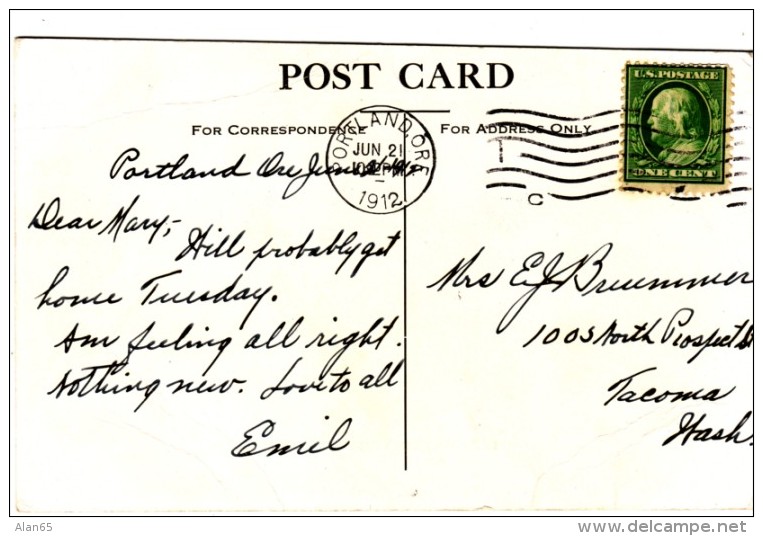 POST CARD
FOR CORRESPONDENCE
FOR ADDRESS ONLY
U.S. POSTAGE
ONE CENT
PORTLAND, ORE.
JUN 21
1912
C
Portland Ore June
Dear Mary;-
Will probably get
home Tuesday.
Am feeling all right.
Nothing new. Love to all
Emil
Mrs E J Bruemmer
1005 North Prospect St
Tacoma
Wash.
Alan65
delcampe.net